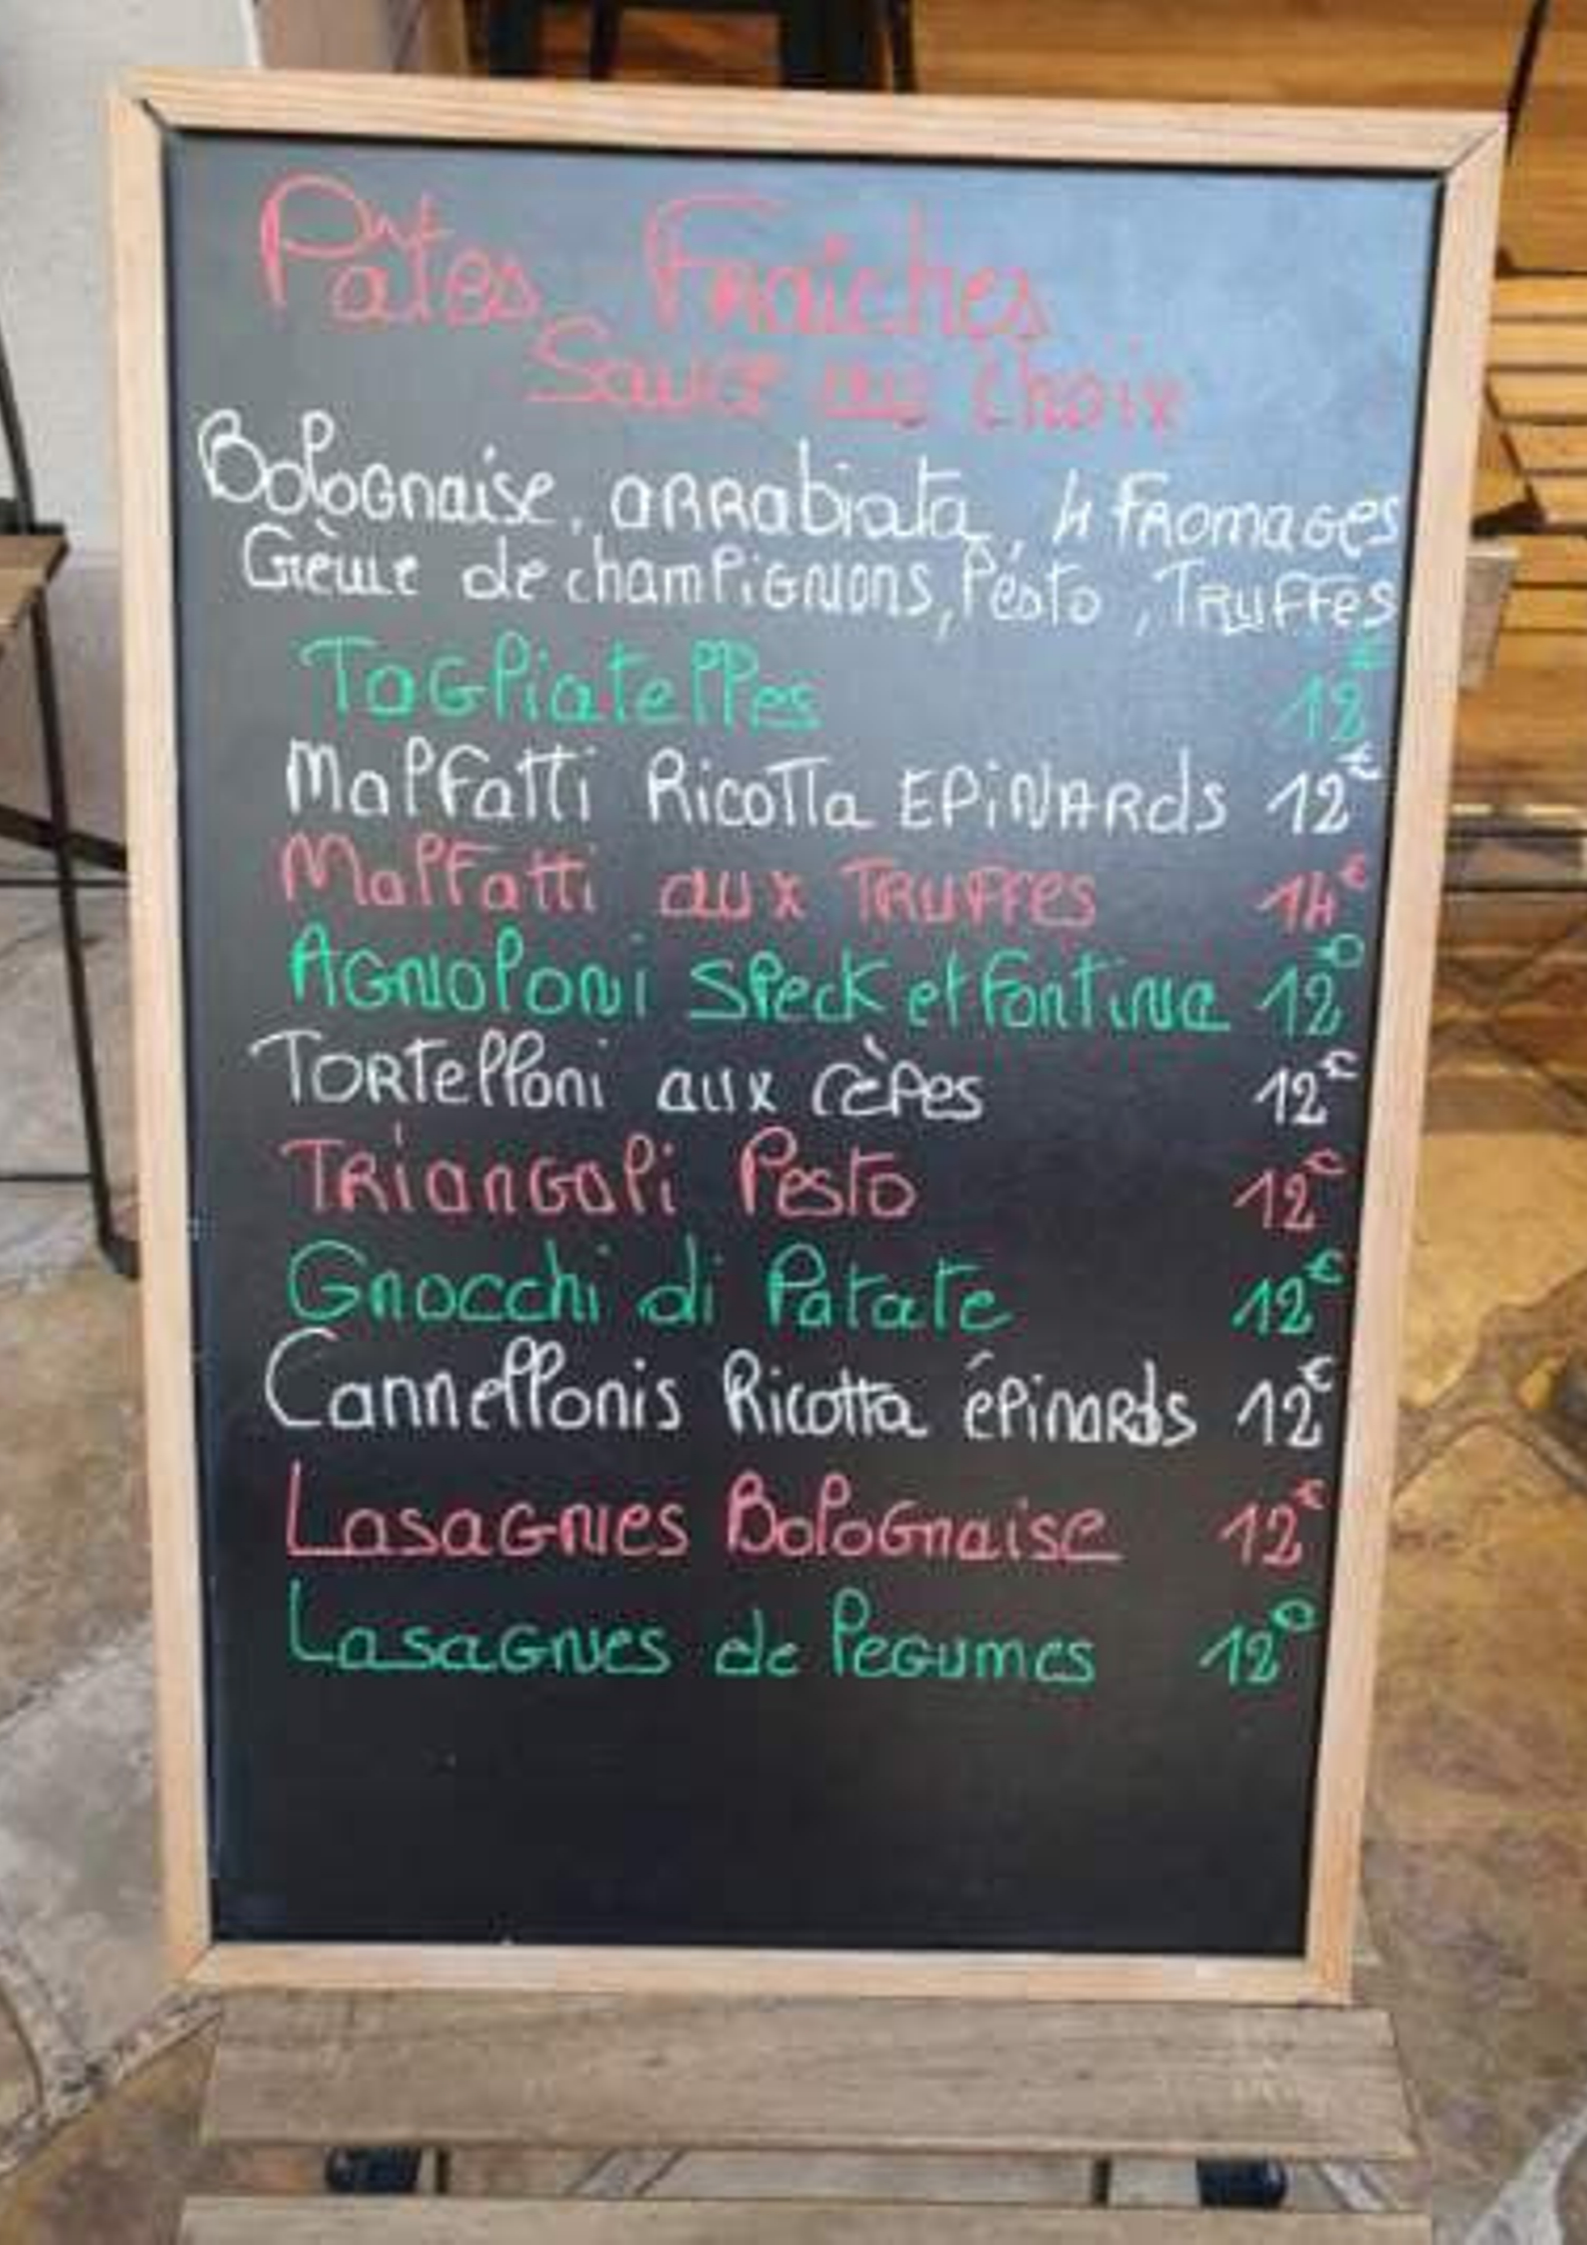 Pâtes Fraiches
Sauce au choix
Bolognaise, arrabiata, 4 Fromages
Crème de champignons, Pésto, Truffes
Tagliatelles 12€
Malfatti Ricotta Epinards 12€
Malfatti aux Truffes 14€
Agnoloni Speck et fontina 12€
Tortelloni aux cèpes 12€
Triangoli Pesto 12€
Gnocchi di Patate 12€
Cannellonis Ricotta épinards 12€
Lasagnes Bolognaise 12€
Lasagnes de legumes 12€